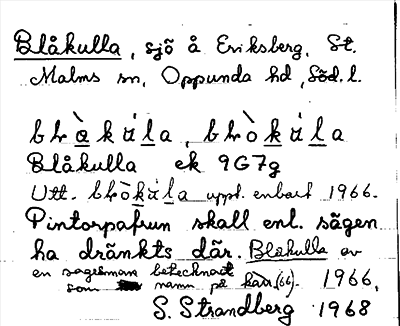 Blåkulla, sjö å Eriksberg, St.
Malms sn, Oppunda hd, Söd. l.
blɒ̀kúla, blòkúla
Blåkulla ek 9G7g
Utt. blòkúla uppt. enbart 1966.
Pintorpafrun skall enl. sägen
ha dränkts där. Blåkulla av
en sagesman betecknat
som namn på kärr (66). 1966,
S. Strandberg 1968